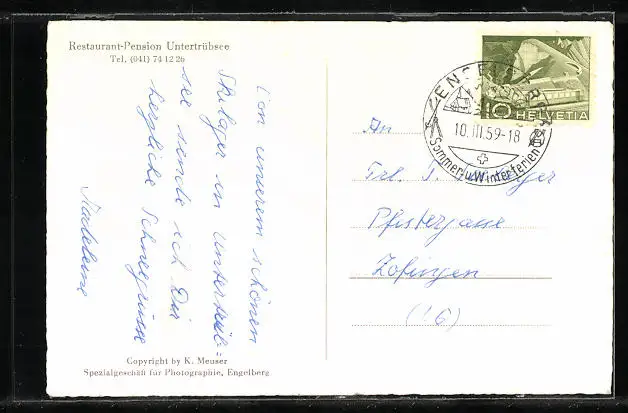 Restaurant-Pension Untertrübsee
Tel. (041) 74 12 26
Von unserem schönen
Skilager in Untertrüb=
see sende ich Dir
herzliche Schneegrüsse
Madeleine
Copyright by K. Meuser
Spezialgeschäft für Photographie, Engelberg
10 HELVETIA
10.III.59-18
Sommer u. Winterferien
An
Frl.
Pfistergasse
Zofingen
(16)